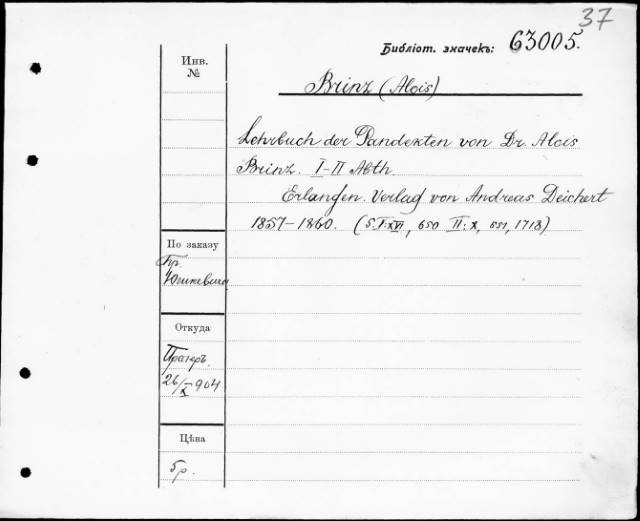 37
Библіот. значекъ: 63005.
Инв.
№
Brinz (Alois)
Lehrbuch der Pandekten von Dr. Alois
Brinz. I-II Abth.
Erlangen. Verlag von Andreas Deichert
1857-1860. (S. I: XVI, 650 II: X, 651, 1718)
По заказу
Гр.
Юшкевича
Откуда
Прагеръ.
26/X 904.
Цѣна
5р.